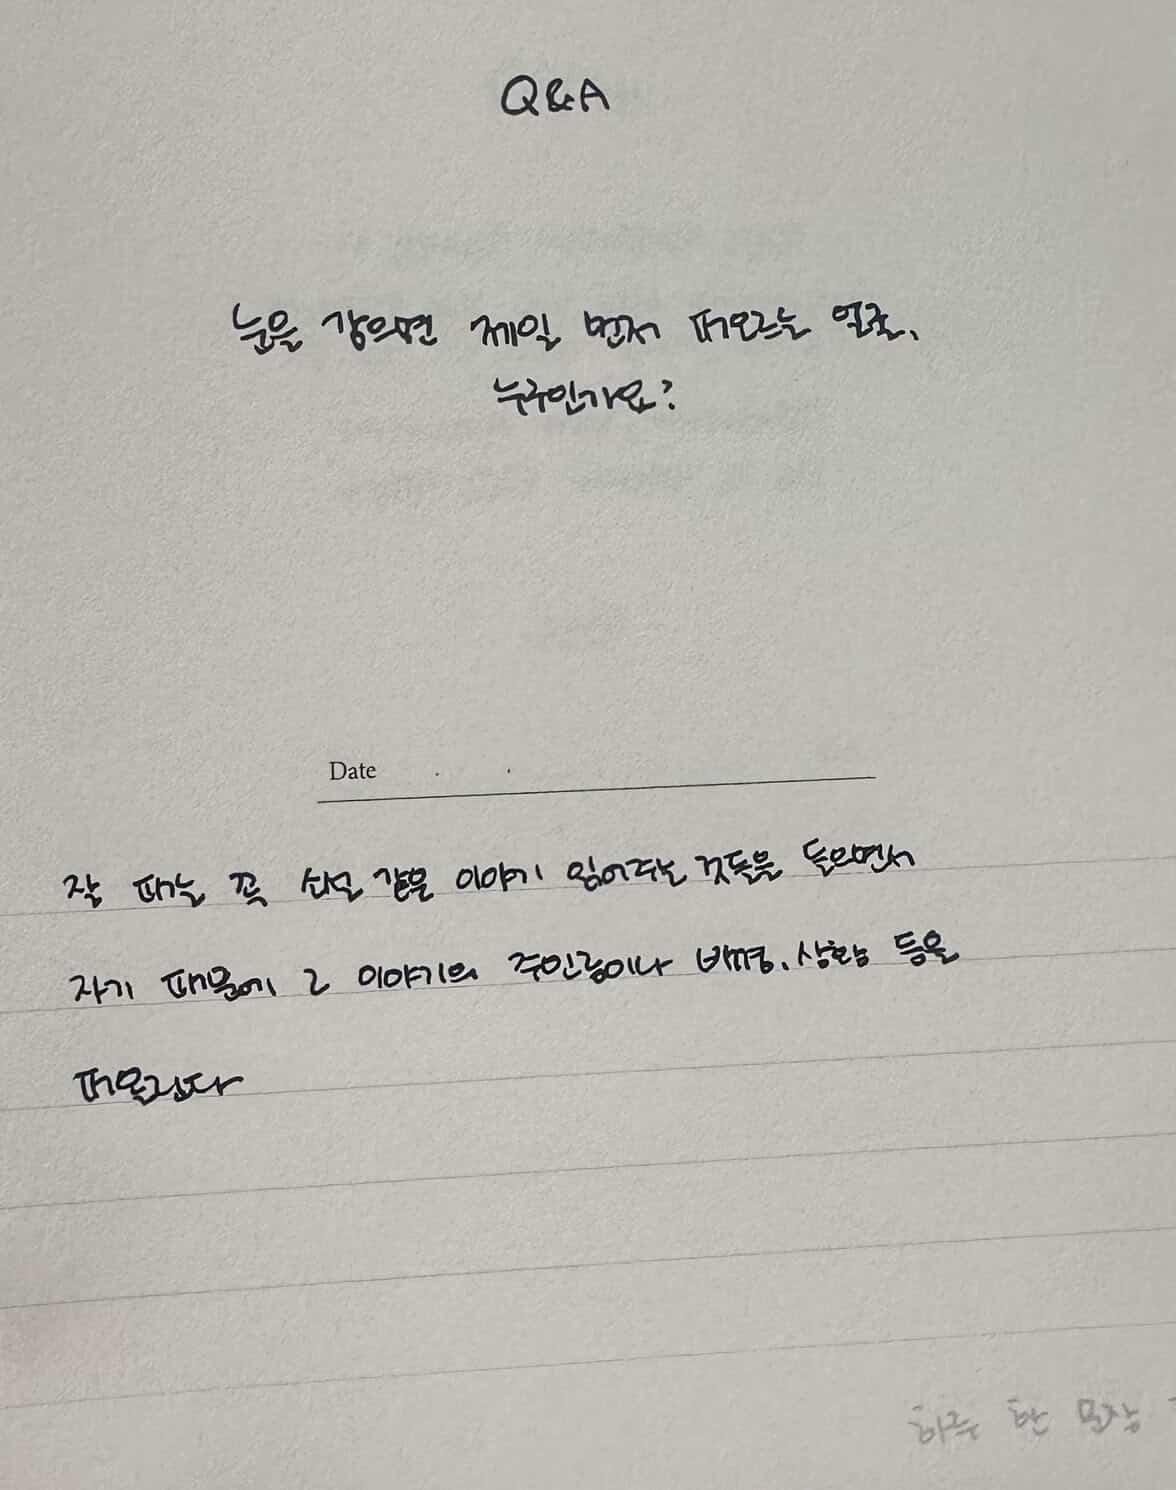 Q&A
눈을 감으면 제일 먼저 떠오르는 얼굴,
누구인가요?
Date . .
잘 때는 꼭 소설 같은 이야기 읽어주는 것들을 들으면서
자기 때문에 그 이야기의 주인공이나 배경, 상황 등을
떠올린다
하루 한 문장